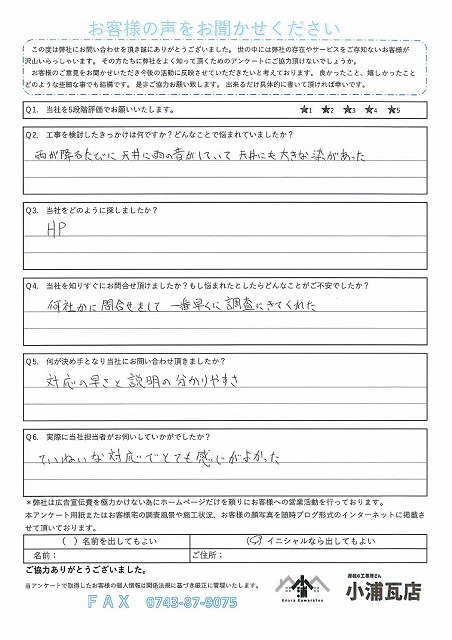 お客様の声をお聞かせください
この度は弊社にお問い合わせを頂き誠にありがとうございました。世の中には弊社の存在やサービスをご存知ないお客様が
沢山いらっしゃいます。その方たちに弊社をよく知って頂くためのアンケートにご協力頂けないでしょうか。
お客様のご意見をお聞かせいただき今後の活動に反映させていただきたいと考えております。良かったこと、嬉しかったこと
どのような些細な事でも結構です。是非ご協力お願い致します。出来るだけ具体的に書いて頂ければ幸いです。
Q1. 当社を5段階評価でお願いいたします。 ★1 ★2 ★3 ★4 ★5
Q2. 工事を検討したきっかけは何ですか？どんなことで悩まれていましたか？
雨が降るたびに天井に雨の音がしていて天井にも大きな染があった
Q3. 当社をどのように探しましたか？
HP
Q4. 当社を知りすぐにお問合せ頂けましたか？もし悩まれたとしたらどんなことがご不安でしたか？
何社かに問合せをして一番早くに調査にきてくれた
Q5. 何が決め手となり当社にお問い合わせ頂きましたか？
対応の早さと説明の分かりやすさ
Q6. 実際に当社担当者がお伺いしていかがでしたか？
ていねいな対応でとても感じがよかった
＊弊社は広告宣伝費を極力かけない為にホームページだけを頼りにお客様への営業活動を行っております。
本アンケート用紙またはお客様宅の調査風景や施工状況、お客様の顔写真を随時ブログ形式のインターネットに掲載さ
せて頂いております。
（ ）名前を出してもよい （○）イニシャルなら出してもよい
名前： ご住所：
ご協力ありがとうございました。
当アンケートで取得したお客様の個人情報は関係法規に基づき厳正に管理いたします。
FAX 0743-87-9075
Koura Kawaraten
屋根の工事屋さん
小浦瓦店